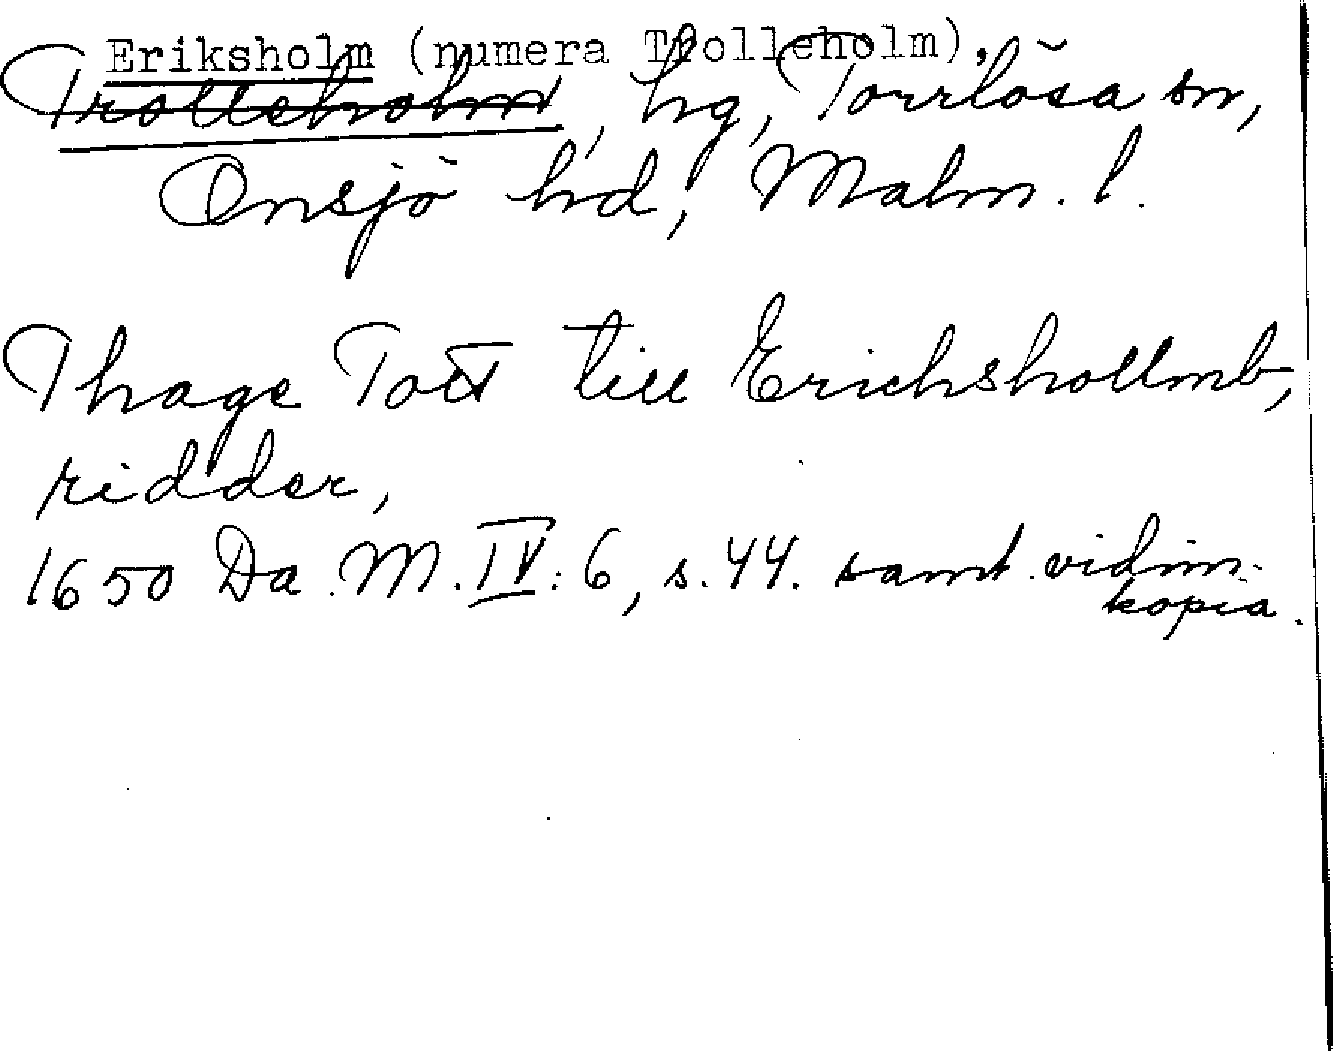 Eriksholm (numera Trolleholm),
Trolleholm, hg, Torrlösa sn,
Onsjö hd, Malm. l.
Thage Tott till Erichshollmb,
ridder,
1650 Da. M. IV: 6, s. 44. samt vidim.
kopia.